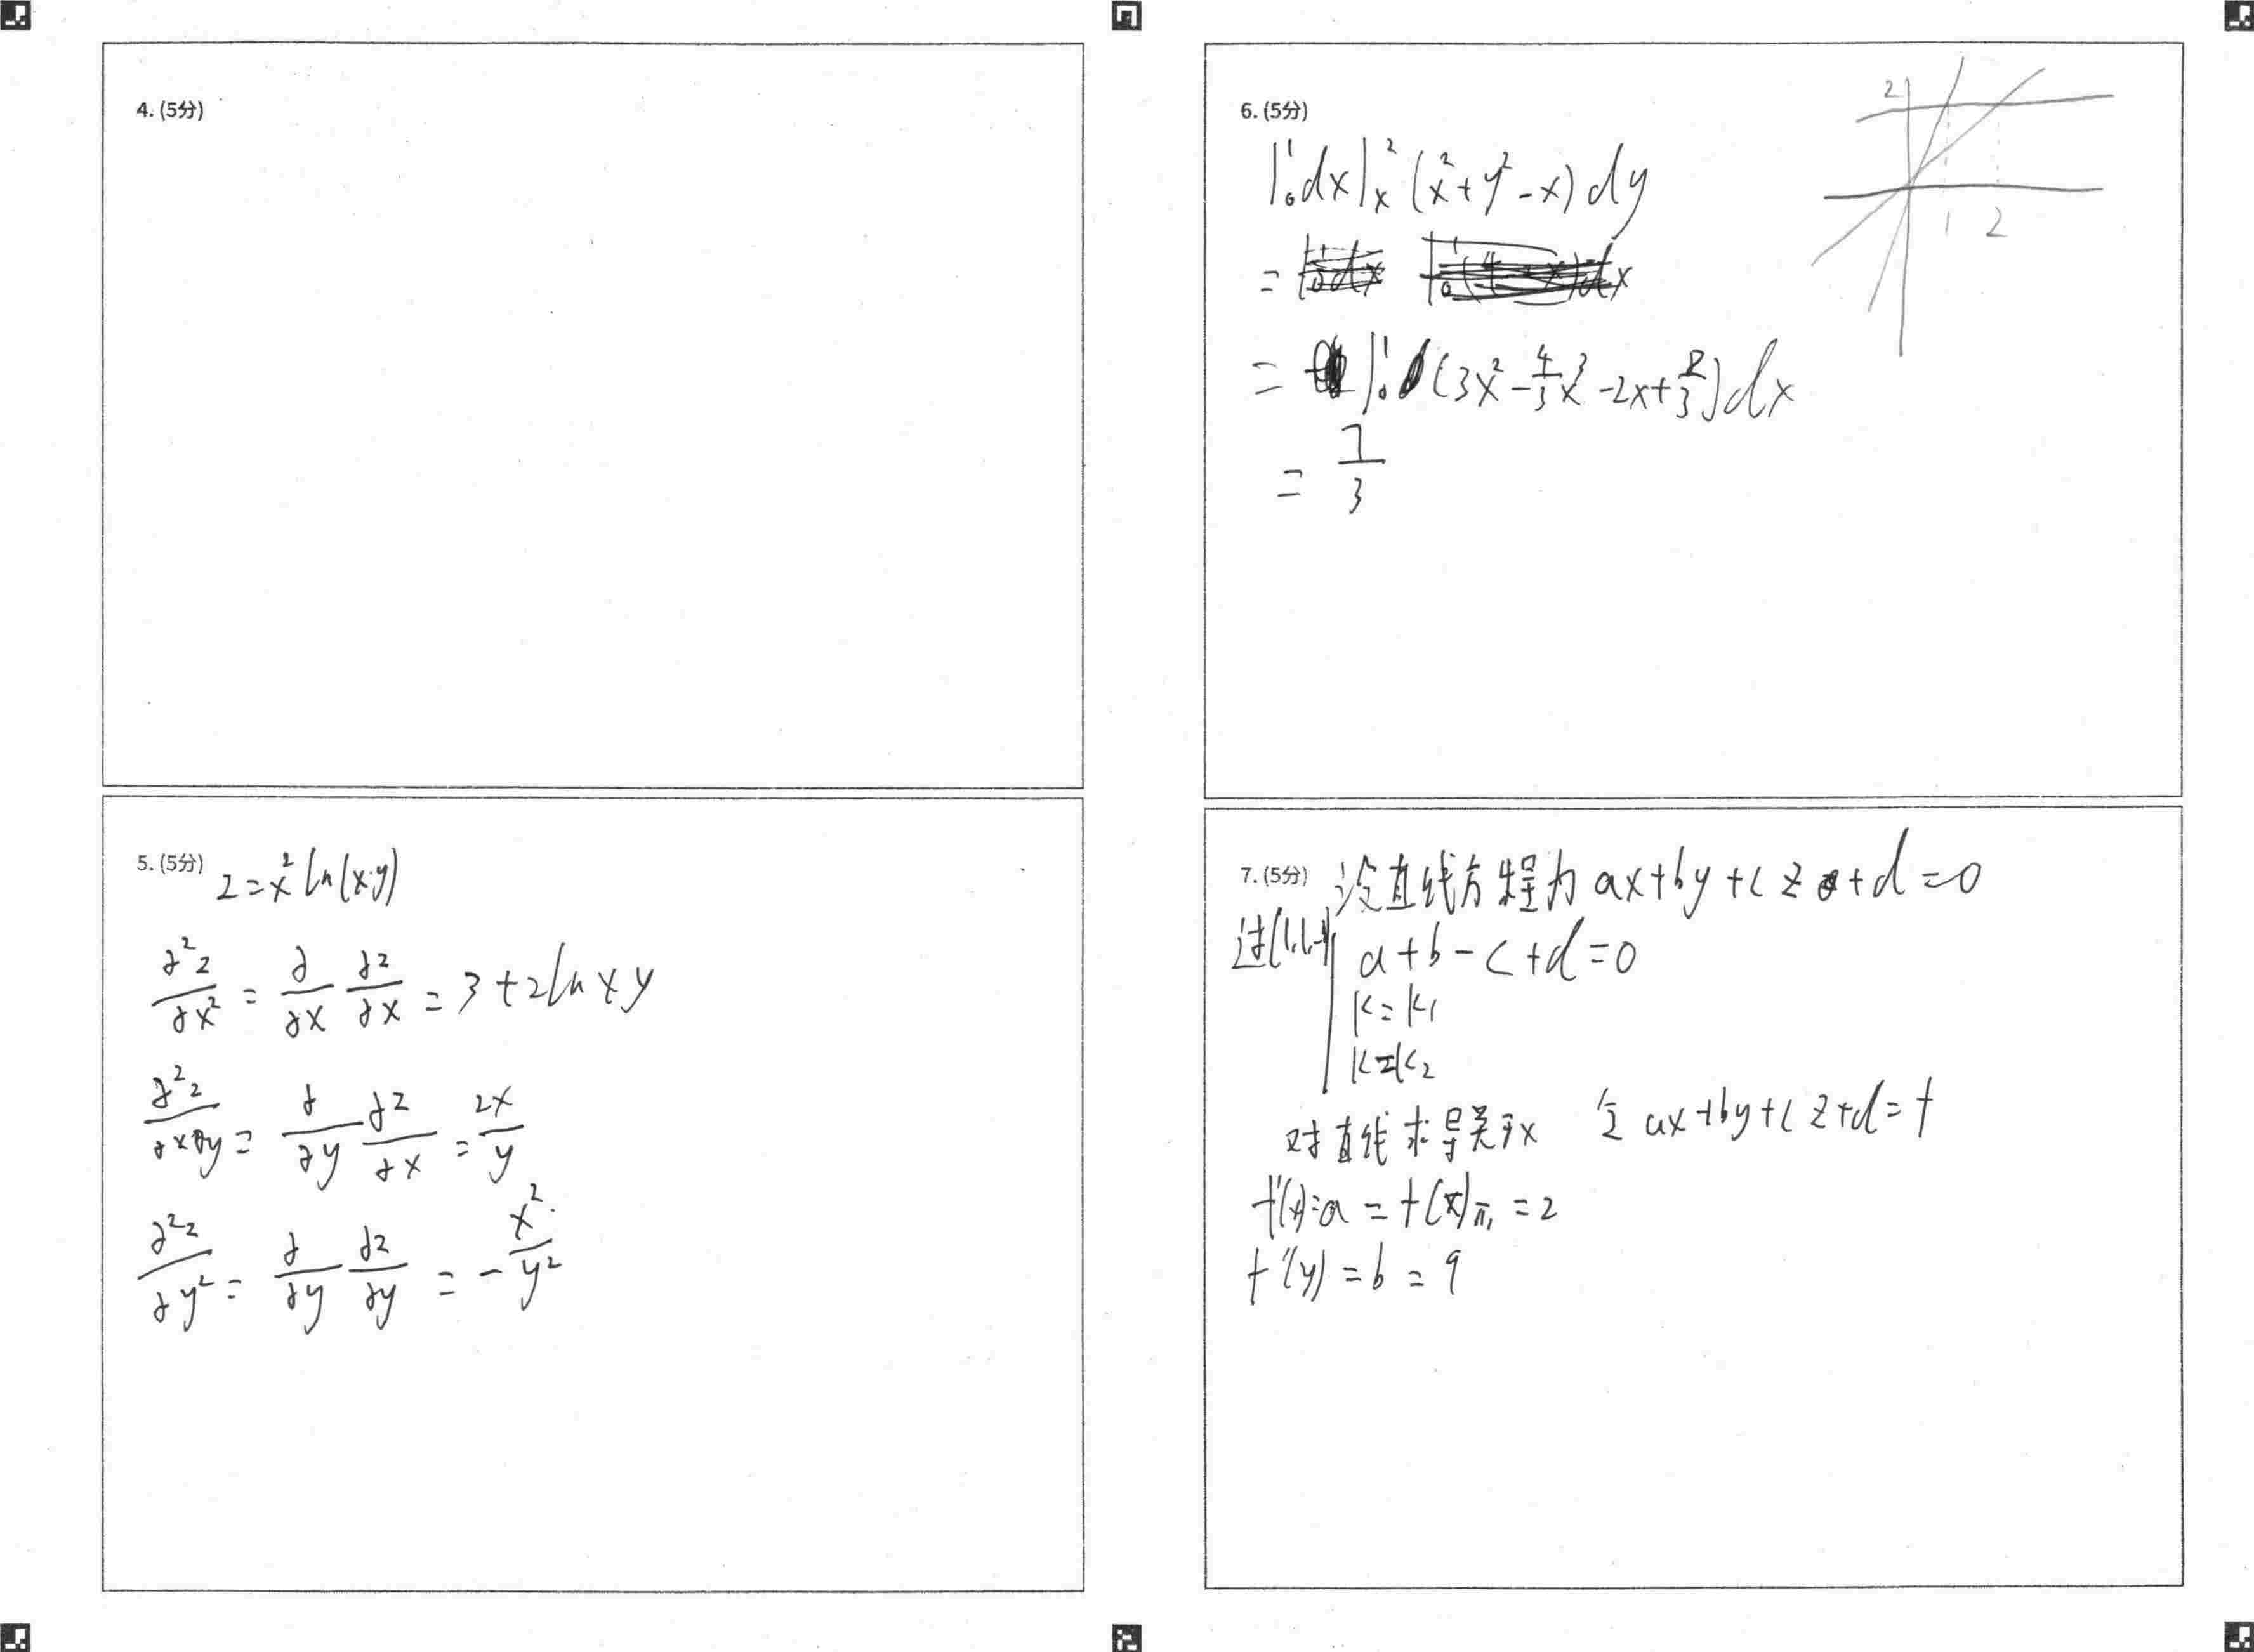 4. (5分)
5. (5分) z=x²ln(xy)
∂²z/∂x² = ∂/∂x ∂z/∂x = 3+2lnxy
∂²z/∂x∂y = ∂/∂y ∂z/∂x = 2x/y
∂²z/∂y² = ∂/∂y ∂z/∂y = -x²/y²
6. (5分)
2
1 2
∫₀¹dx∫ₓ²(x²+y²-x)dy
=
= ∫₀¹(3x²-4/3x³-2x+8/3)dx
= 7/3
7. (5分) 设直线方程为ax+by+cz+d=0
过(1,1,-1) a+b-c+d=0
k=k₁
k=k₂
对直线求导关于x 令ax+by+cz+d=f
f'(x)=a=f(x)π₁=2
f'(y)=b=9